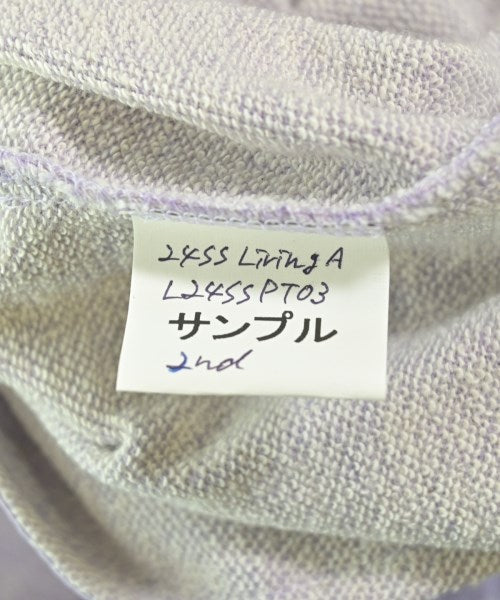 24SS Living A
L24SSPT03
サンプル
2nd